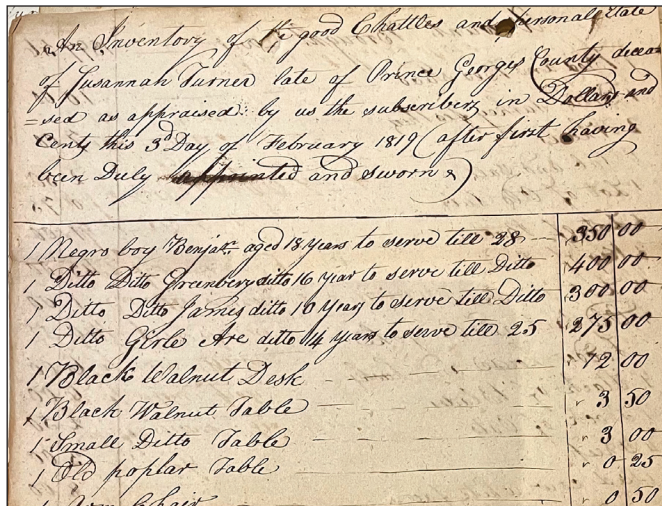 An Inventory of the good Chattles and personale Estate
of Susannah Turner late of Prince Georges County decea
=sed as appraised by us the subscribers in Dollars and
Cents this 3d Day of February 1819 (after first having
been Duly appointed and sworn &)
1 Negro boy Benjan aged 18 years to serve till 28 350 00
1 Ditto Ditto Greenbery ditto 16 year to serve till Ditto 400 00
1 Ditto Ditto James ditto 10 years to serve till Ditto 300 00
1 Ditto Girle ditto 14 years to serve till 25 275 00
1 Black Walnut Desk 12 00
1 Black Walnut Table 3 50
1 Small Ditto Table 3 00
1 Old poplar Table 0 25
1 Arm Chair 0 50